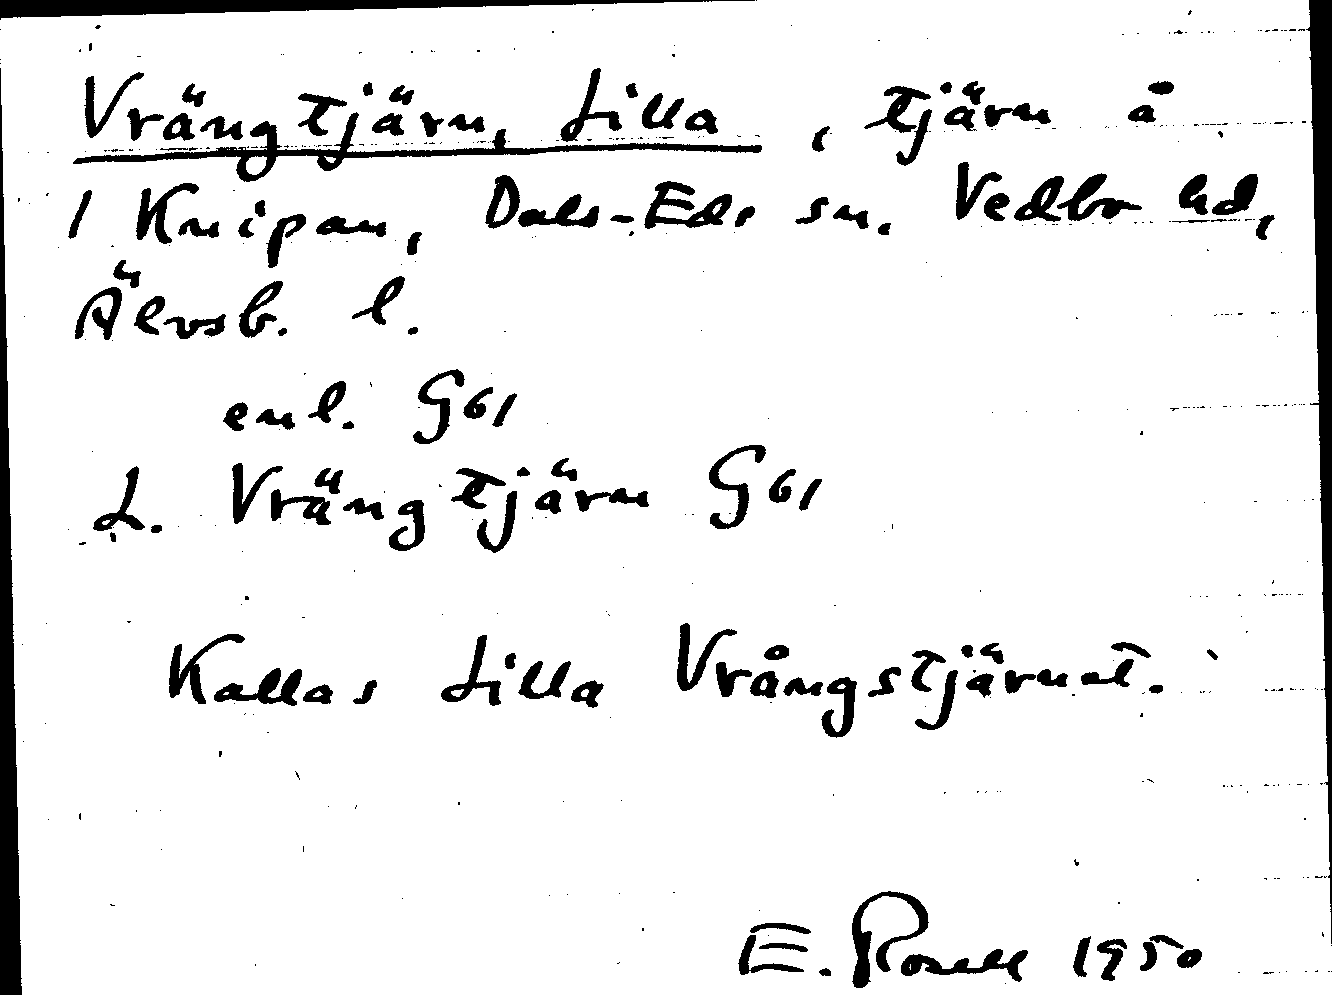 Vrängtjärn, Lilla, tjärn å
1 Knipan, Dals-Eds sn. Vedbo hd,
Älvsb. l.
enl. G61
L. Vrängtjärn G61
Kallas Lilla Vrångstjärnet.
E. Rosell 1950